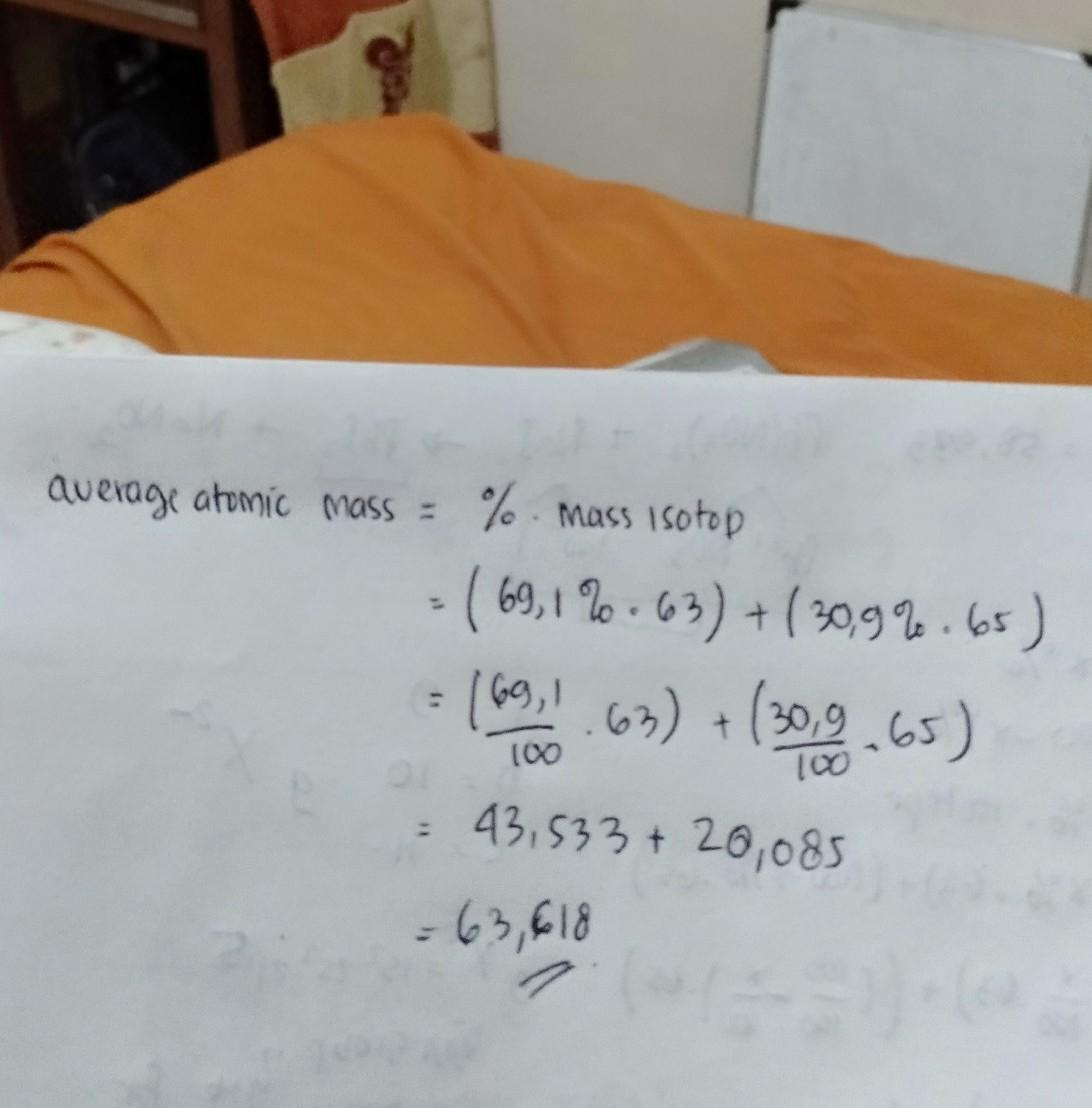 average atomic mass = % . mass isotop
= ( 69,1 % . 63 ) + ( 30,9 % . 65 )
= ( 69,1/100 . 63 ) + ( 30,9/100 . 65 )
= 43,533 + 20,085
= 63,618